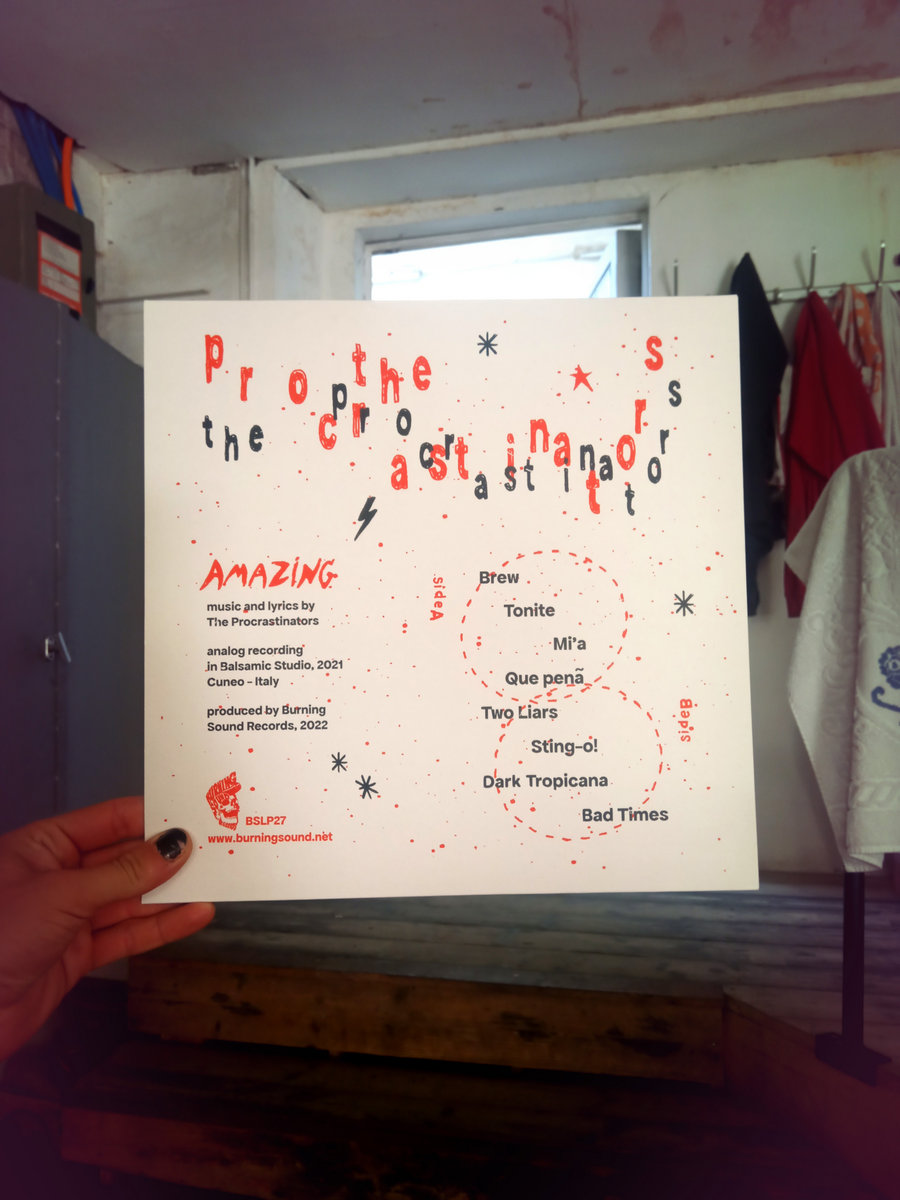 the procrastinators
the procrastinators
AMAZING
music and lyrics by
The Procrastinators
analog recording
in Balsamic Studio, 2021
Cuneo - Italy
produced by Burning
Sound Records, 2022
BURNING
BSLP27
www.burningsound.net
sideA
Brew
Tonite
Mi'a
Que penã
sideB
Two Liars
Sting-o!
Dark Tropicana
Bad Times